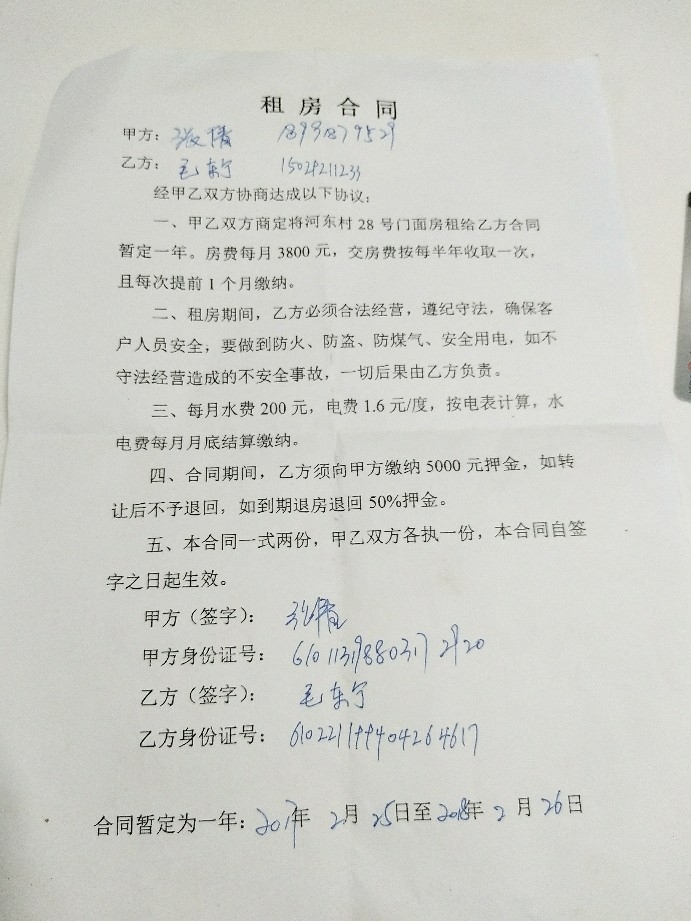 租房合同
甲方：张倩 18931879529
乙方：毛东宁 15029211233
经甲乙双方协商达成以下协议：
一、甲乙双方商定将河东村 28 号门面房租给乙方合同
暂定一年。房费每月 3800 元，交房费按每半年收取一次，
且每次提前 1 个月缴纳。
二、租房期间，乙方必须合法经营，遵纪守法，确保客
户人员安全；要做到防火、防盗、防煤气、安全用电，如不
守法经营造成的不安全事故，一切后果由乙方负责。
三、每月水费 200 元，电费 1.6 元/度，按电表计算，水
电费每月月底结算缴纳。
四、合同期间，乙方须向甲方缴纳 5000 元押金，如转
让后不予退回，如到期退房退回 50%押金。
五、本合同一式两份，甲乙双方各执一份，本合同自签
字之日起生效。
甲方（签字）：张倩
甲方身份证号：610113198803172920
乙方（签字）：毛东宁
乙方身份证号：610221199404264617
合同暂定为一年：2017年 2月 25日至2018年 2 月 26日